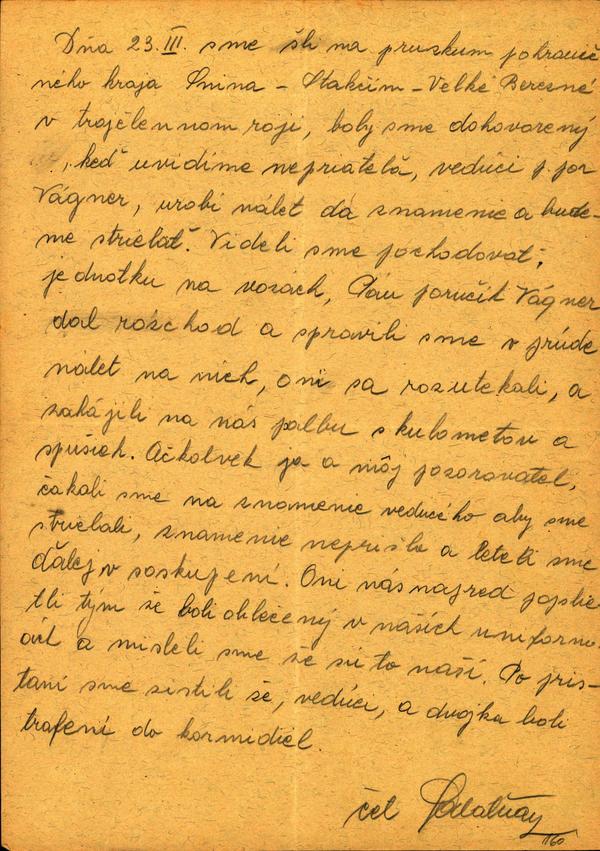 Dňa 23. III. sme šli na pruzkum pohranič
ného kraja Snina – Stakčim – Velké Berezné
v trojčlennom roji, boly sme dohovorený
, keď uvidíme nepriatelâ, vedúci p. por
Vágner, urobí nálet dá znamenie a bude-
me strielať. Videli sme pochodovať,
jednotku na vozách, Pán poručík Vágner
dal rozchod a spravili sme v prúde
nálet na nich, oni sa rozutekali, a
zahájili na nás palbu s kulometov a
. Ačkolvek ja a môj pozorovateľ,
čakali sme na znamenie vedúcého aby sme
strielali, znamenie neprišlo a leteli sme
ďalej v soskupení. Oni nás najpred
tli tým že boli oblečený v našich uniformo-
ách a misleli sme že sú to naší. Po pris-
taní sme zistili že, vedúci, a dvojka boli
trafení do kormidiel.
čat
160